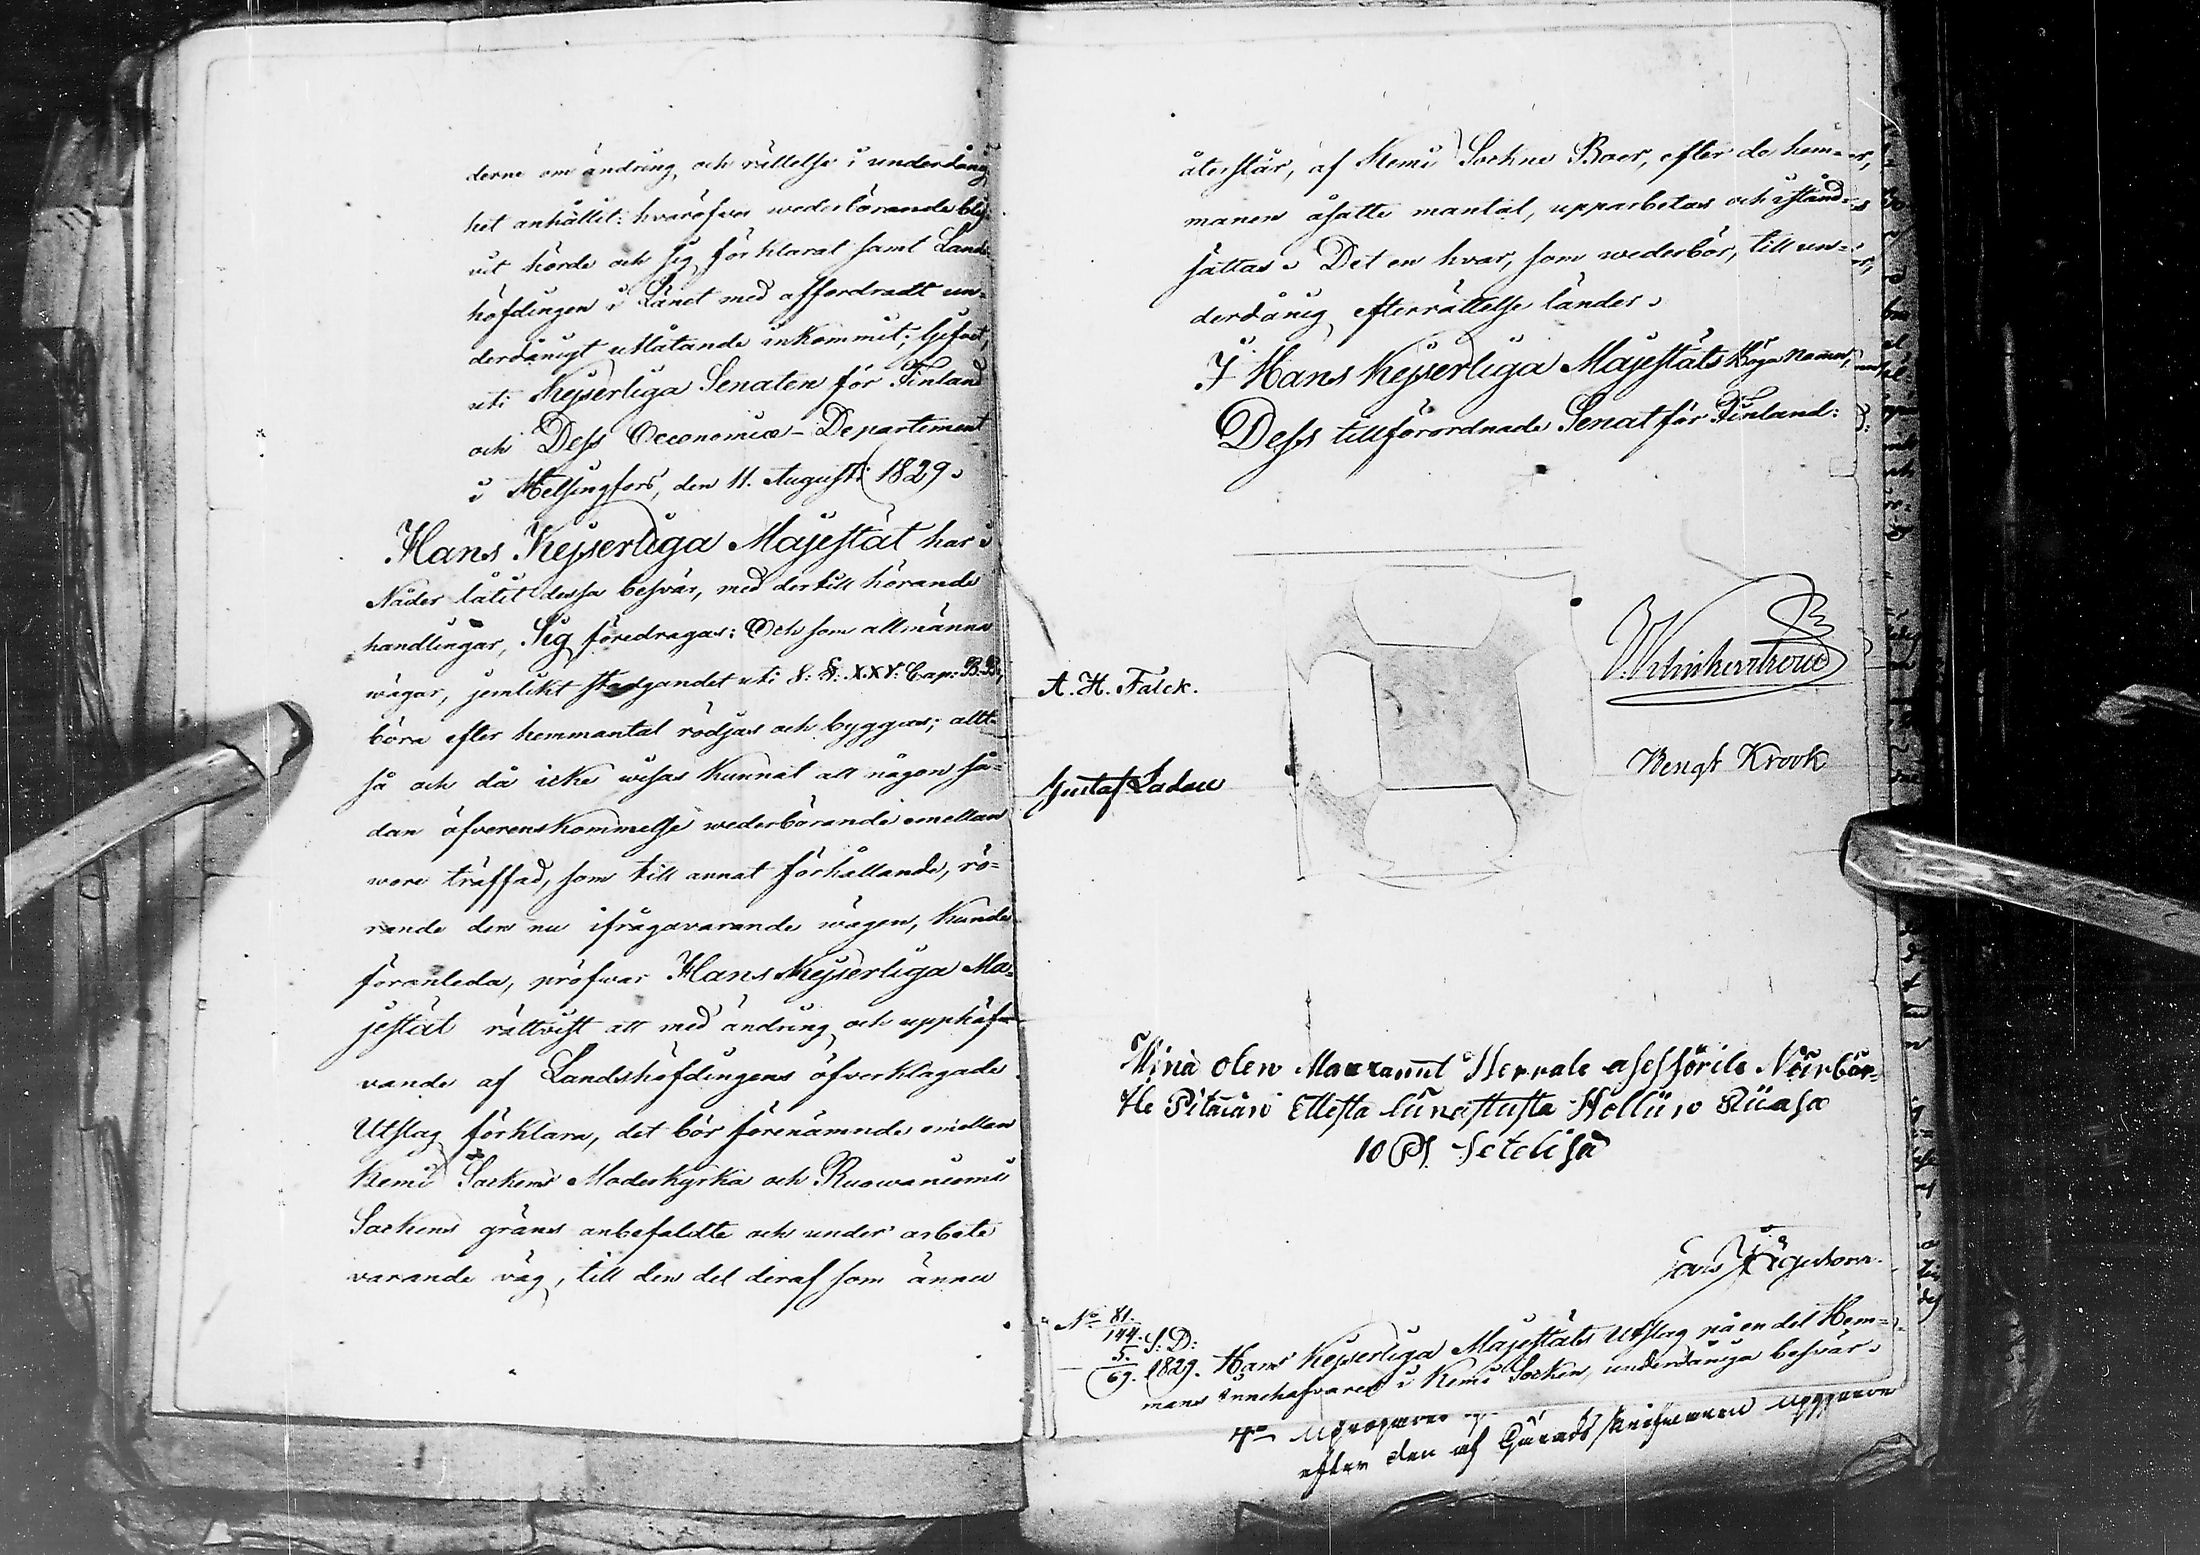 derne om ändring och rättelse i underdånig
het anhållit: hvaröfver wederbörande blif
vit hörde och sig förklarat samt Lands
höfdingen i Länet med affordradt un-
derdånigt utlåtande inkommit; Gifvet,
uti Kejserliga Senaten för Finland
och Dess Oeconomiæ-Departement
i Helsingfors, den 11. Augusti 1829.
Hans Kejserliga Majestät har i
Nåder låtit dessa besvär, med dertill hörande
handlingar, Sig föredragas: Och som allmänna
wägar, jemlikt stadgandet uti 8: §: XXV: Cap: B.B.,
böra efter hemmantal rödjas och byggas; allt-
så och då icke wisas kunnat att någon så-
dan öfverenskommelse wederbörande emellan
wore träffad, som till annat förhållande, rö-
rande den nu ifrågavarande wägen, kunde
föranleda, pröfwar Hans Kejserliga Ma-
jestät rättvist att med ändring och upphäf-
vande af Landshöfdingens öfverklagade
Utslag förklara, det bör förenämnde emellan
Kemi Sockens Moderkyrka och Ruowaniemi
Sockens gräns anbefaldte och under arbete
varande väg, till den del deraf som ännu
återstår, af Kemi Sockne Boer, efter de hem-
manen åsatte mantal, upparbetas och istånd-
sättas. Det en hvar, som wederbör, till un-
derdånig efterrättelse länder.
I Hans Kejserliga Majestäts Höga Namn,
Dess tillförordnade Senat för Finland:
A. H. Falck.
Gustaf Ladau
Bengt Krook
Minä olen Maxanut Herrale asessörile
Pitäiän Ellestä
10 setelisä
No 81.
144. S: D:
5.
69. 1829. Hans Kejserliga Majestäts Utslag på en del Hem-
mans Innehafvares i Kemi Socken, underdåniga besvär.
efter den af